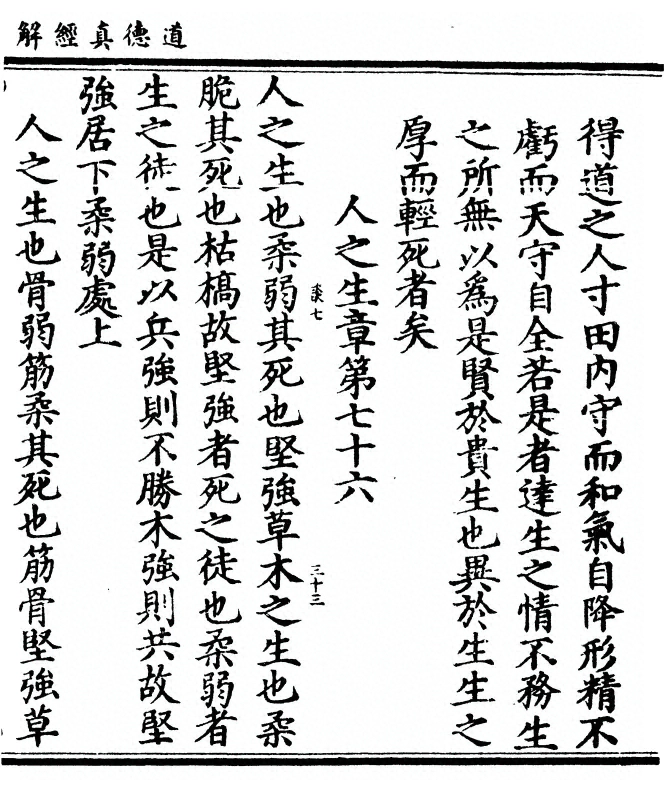 道德真經解
得道之人寸田內守而和氣自降形精不
虧而天守自全若是者達生之情不務生
之所無以為是賢於貴生也異於生生之
厚而輕死者矣
人之生章第七十六
三十三
人之生也柔弱其死也堅強草木之生也柔
脆其死也枯槁故堅強者死之徒也柔弱者
生之徒也是以兵強則不勝木強則共故堅
強居下柔弱處上
人之生也骨弱筋柔其死也筋骨堅強草